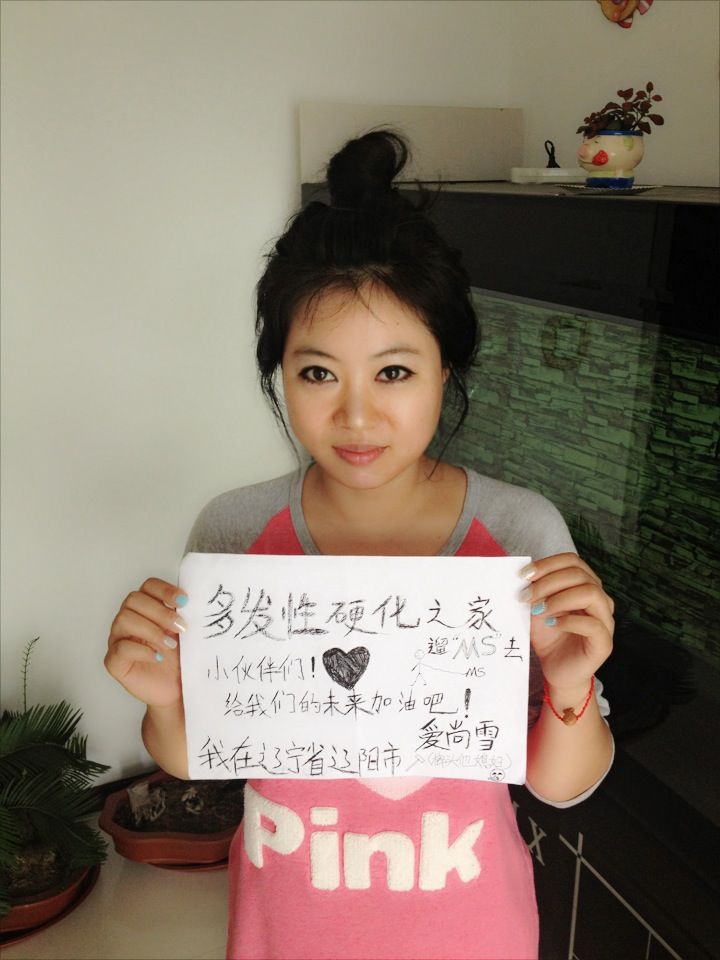 多发性硬化之家
遛"MS"去
小伙伴们！
MS
给我们的未来加油吧！
爱尚雪
我在辽宁省辽阳市
Pink